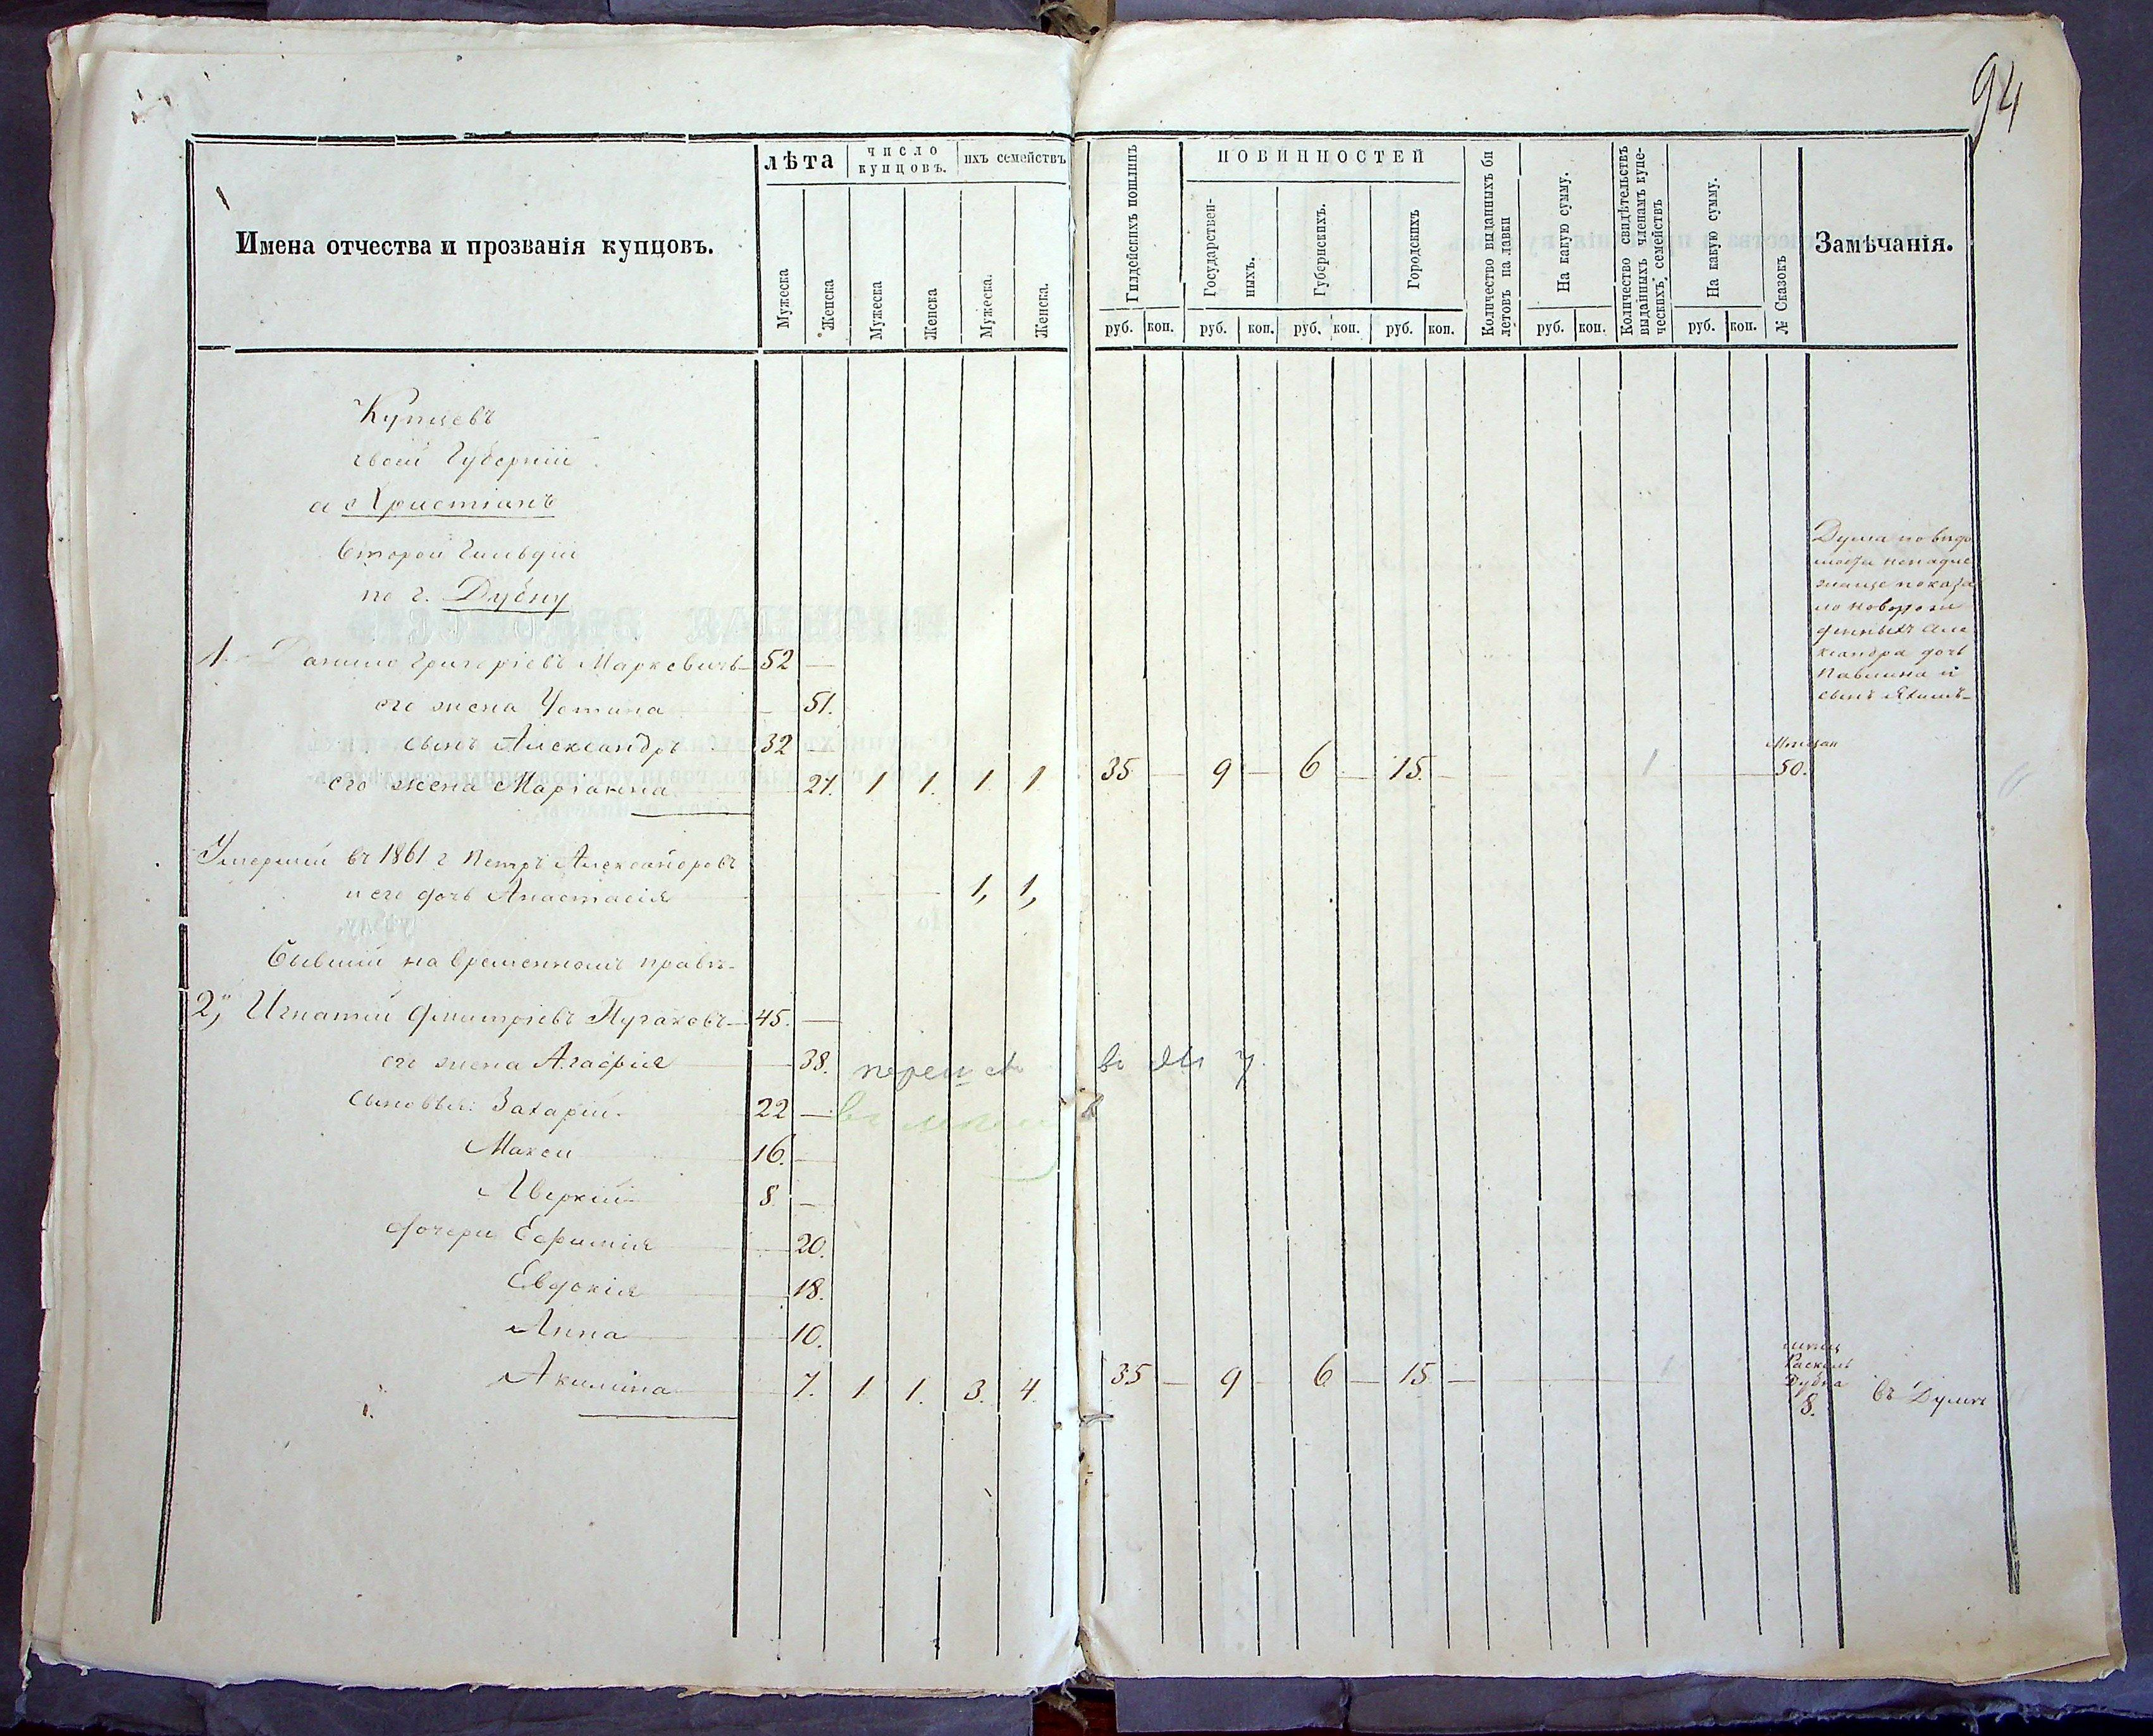 94
Имена отчества и прозванія купцовъ.
лѣта
число купцовъ.
ихъ семействъ
Мужеска
Женска
Мужеска
Женска
Мужеска.
Женска.
Гилдейскихъ пошлинъ
ПОВИННОСТЕЙ
Государствен-
ныхъ.
Губернскихъ.
Городскихъ
Количество выданныхъ би
летовъ на лавки
На какую сумму.
Количество свидѣтельствъ
выданныхъ членамъ купе-
ческихъ семействъ
На какую сумму.
№ Сказокъ
Замѣчанія.
руб. коп. руб. коп. руб. коп. руб. коп. руб. коп. руб. коп.
Купцевъ
своій Губерніи
а Христіанъ
Второй Гильдіи
по г. Дубну
1. Данило Григоріевъ Марковичъ 52 —
его жена Устина — 51.
сынъ Александръ 32 —
его жена Маріанна 27. 1 1. 1. 1. 35 — 9 — 6 — 15. — 1 50.
Умершій въ 1861 г Петръ Александровъ
и его дочь Анастасія 1, 1,
Бывшій на временномъ правѣ
2, Игнатій Дмитріевъ Пугачевъ 45. —
его жена Агафія 38.
сыновья: Захарій. 22 —
Мокей 16. —
Аверкій 8 —
дочери Ефимія 20.
Евдокія 18.
Анна 10.
Акилина 7. 1 1. 3. 4. 35 — 9 — 6 — 15. — 1
Расколь
Дубна
8.
въ Думѣ
Дума по вѣдо
мости
показа
ло новорож
денныхъ Але
ксандра дочь
Павлина и
сынъ